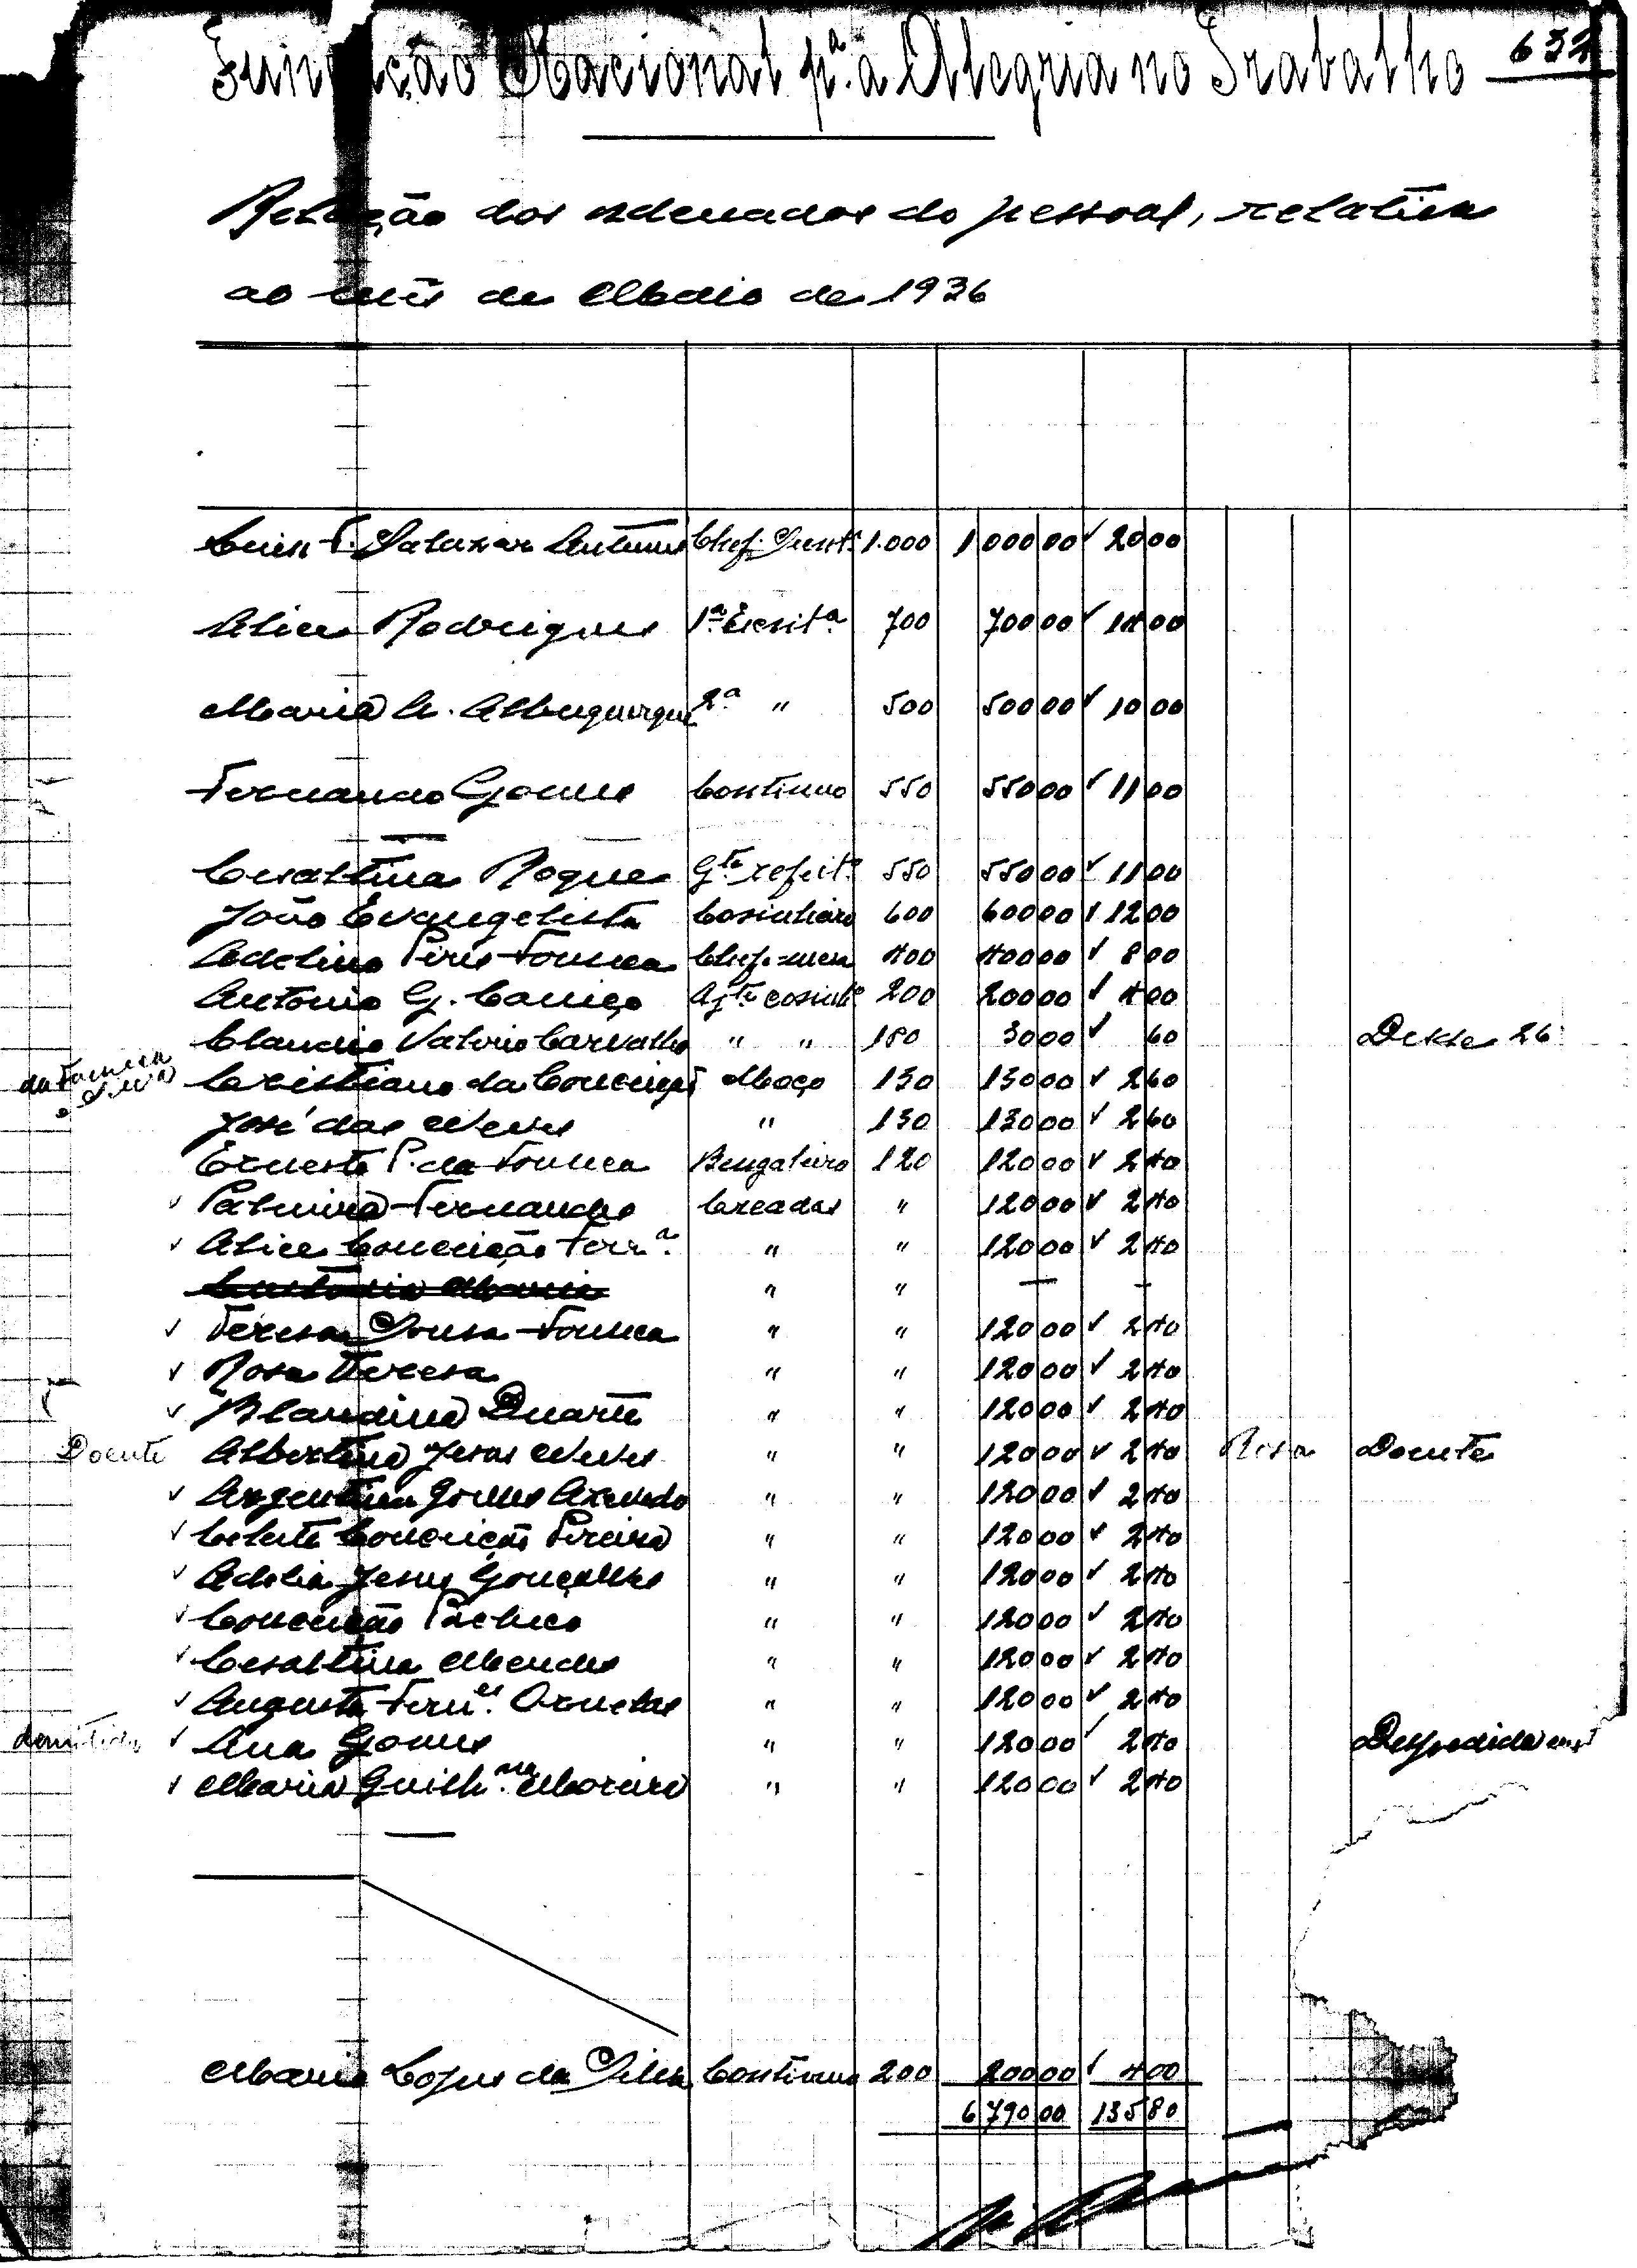 632
Fundação Nacional pª a Alegria no Trabalho
Relação dos ordenados do pessoal, relativa
ao mês de Maio de 1936
Salazar Antunes Chef. 1.000 1 000 00 ✓ 20 00
Alice Rodrigues 1ª Escritª 700 700 00 ✓ 14 00
Maria A. Albuquerque 2ª " 500 500 00 ✓ 10 00
Fernando Gomes Contínuo 550 550 00 ✓ 11 00
Cesaltina Roque Gte refeitº 550 550 00 ✓ 11 00
João Evangelista Cosinheiro 600 600 00 ✓ 12 00
Adelino Pires Fonseca Chefe-mesa 400 400 00 ✓ 8 00
António G. Caniço Ajte cosinhº 200 200 00 ✓ 4 00
Claudio Valerio Carvalho " " 180 30 00 ✓ 60 Desde 26
Cristiano da Conceição Moço 130 130 00 ✓ 2 60
José das Neves " 130 130 00 ✓ 2 60
Ernesto P. da Fonseca Bengaleiro 120 120 00 ✓ 2 40
✓ Palmira Fernandes Creadas " 120 00 ✓ 2 40
✓ Alice Conceição Ferrª " " 120 00 ✓ 2 40
" " — —
✓ Teresa Sousa Fonseca " " 120 00 ✓ 2 40
✓ Rosa Teresa " " 120 00 ✓ 2 40
✓ Blandina Duarte " " 120 00 ✓ 2 40
Doente Albertina Jesus Neves " " 120 00 ✓ 2 40 Rosa Doente
✓ Argentina Gomes Azevedo " " 120 00 ✓ 2 40
✓ Celeste Conceição Pereira " " 120 00 ✓ 2 40
✓ Adelia Jesus Gonçalves " " 120 00 ✓ 2 40
✓ Conceição Pacheco " " 120 00 ✓ 2 40
✓ Cesaltina Mendes " " 120 00 ✓ 2 40
✓ Augusta Fernes Ornelas " " 120 00 ✓ 2 40
✓ Ana Gomes " " 120 00 ✓ 2 40 Despedida
✓ Maria Guilhna Moreira " " 120 00 ✓ 2 40
Maria Lopes da Silva Contínuo 200 200 00 ✓ 4 00
6 790 00 135 80